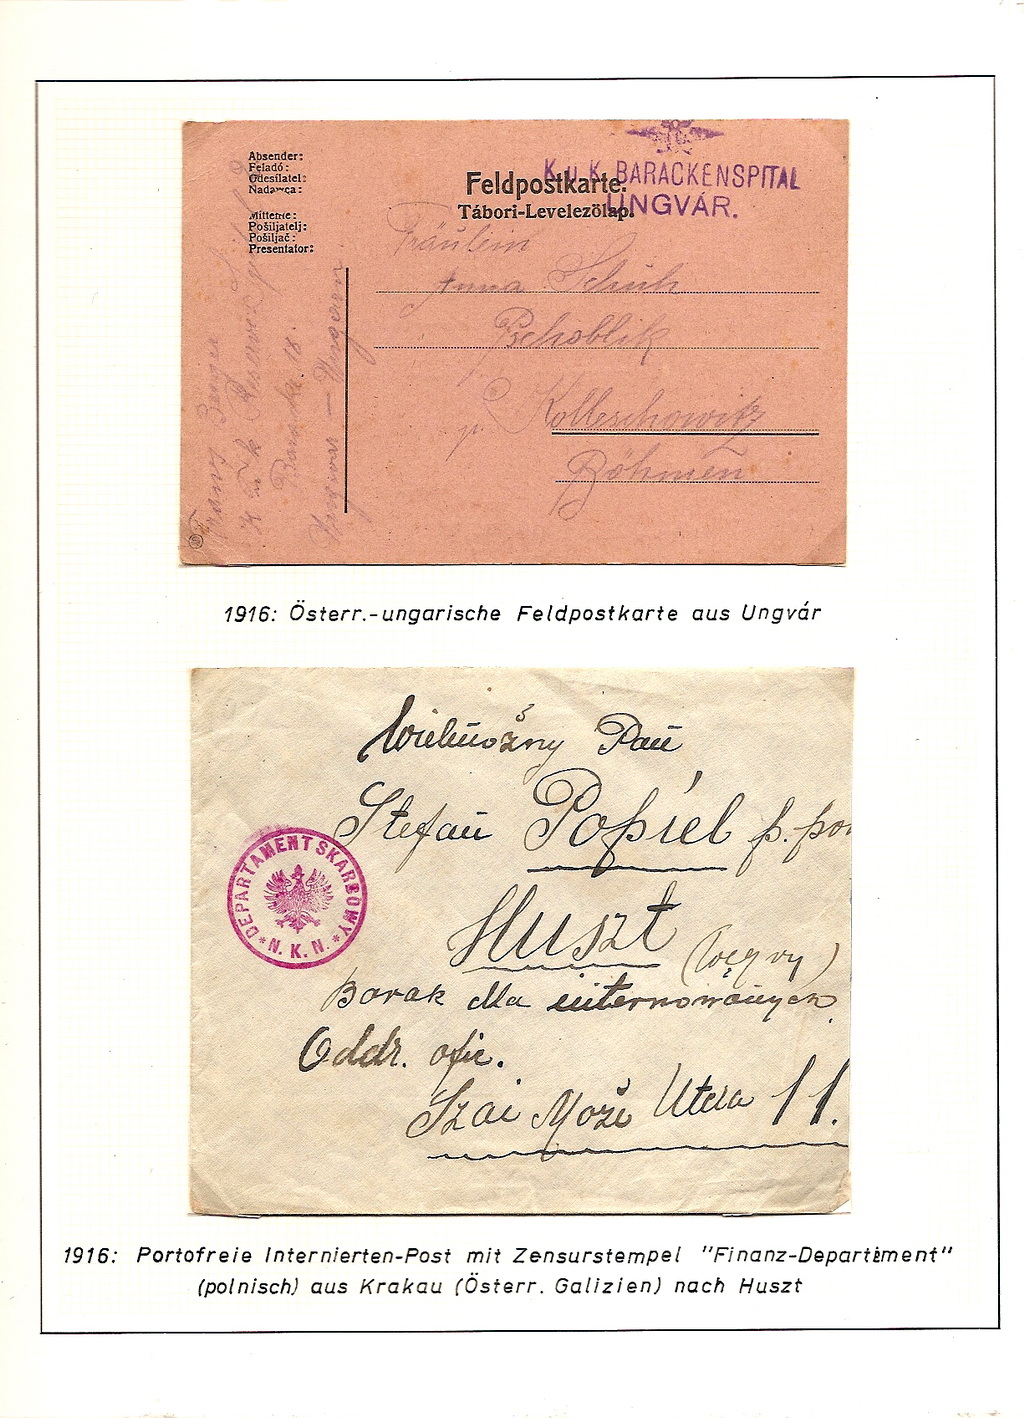 Absender:
Feladó:
Odesílatel:
Nadawca:
Mittente:
Pošiljatelj:
Pošiljač:
Presentator:
K. u. K. BARACKENSPITAL
UNGVÁR.
Feldpostkarte.
Tábori-Levelezőlap.
Fräulein
Anna Schuh
Pschoblik
p. Kolleschowitz
Böhmen
Franz
Baracke 18.
Ungvar — Ungarn
1916: Österr.-ungarische Feldpostkarte aus Ungvár
Wielmożny Pan
Stefan Popiel p. por
Huszt (Węgry)
Barak dla internowanych
Oddz. ofic.
Szai Może Utcza 11.
DEPARTAMENT SKARBOWY
* N. K. N. *
1916: Portofreie Internierten-Post mit Zensurstempel "Finanz-Departement"
(polnisch) aus Krakau (Österr. Galizien) nach Huszt